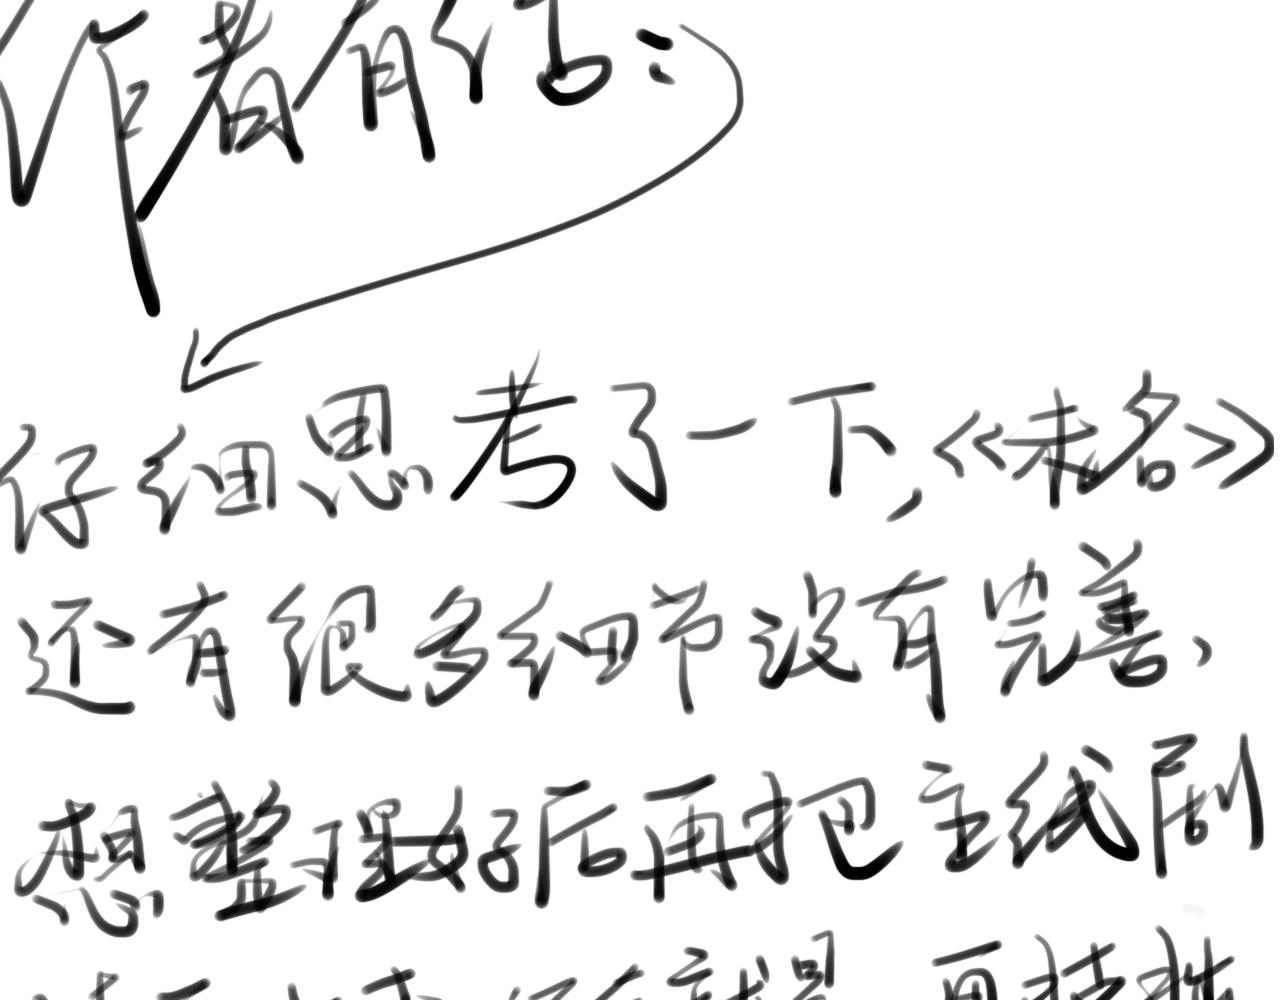 作者有话:
仔细思考了一下,《未名》
还有很多细节没有完善,
想整理好后再把主线剧